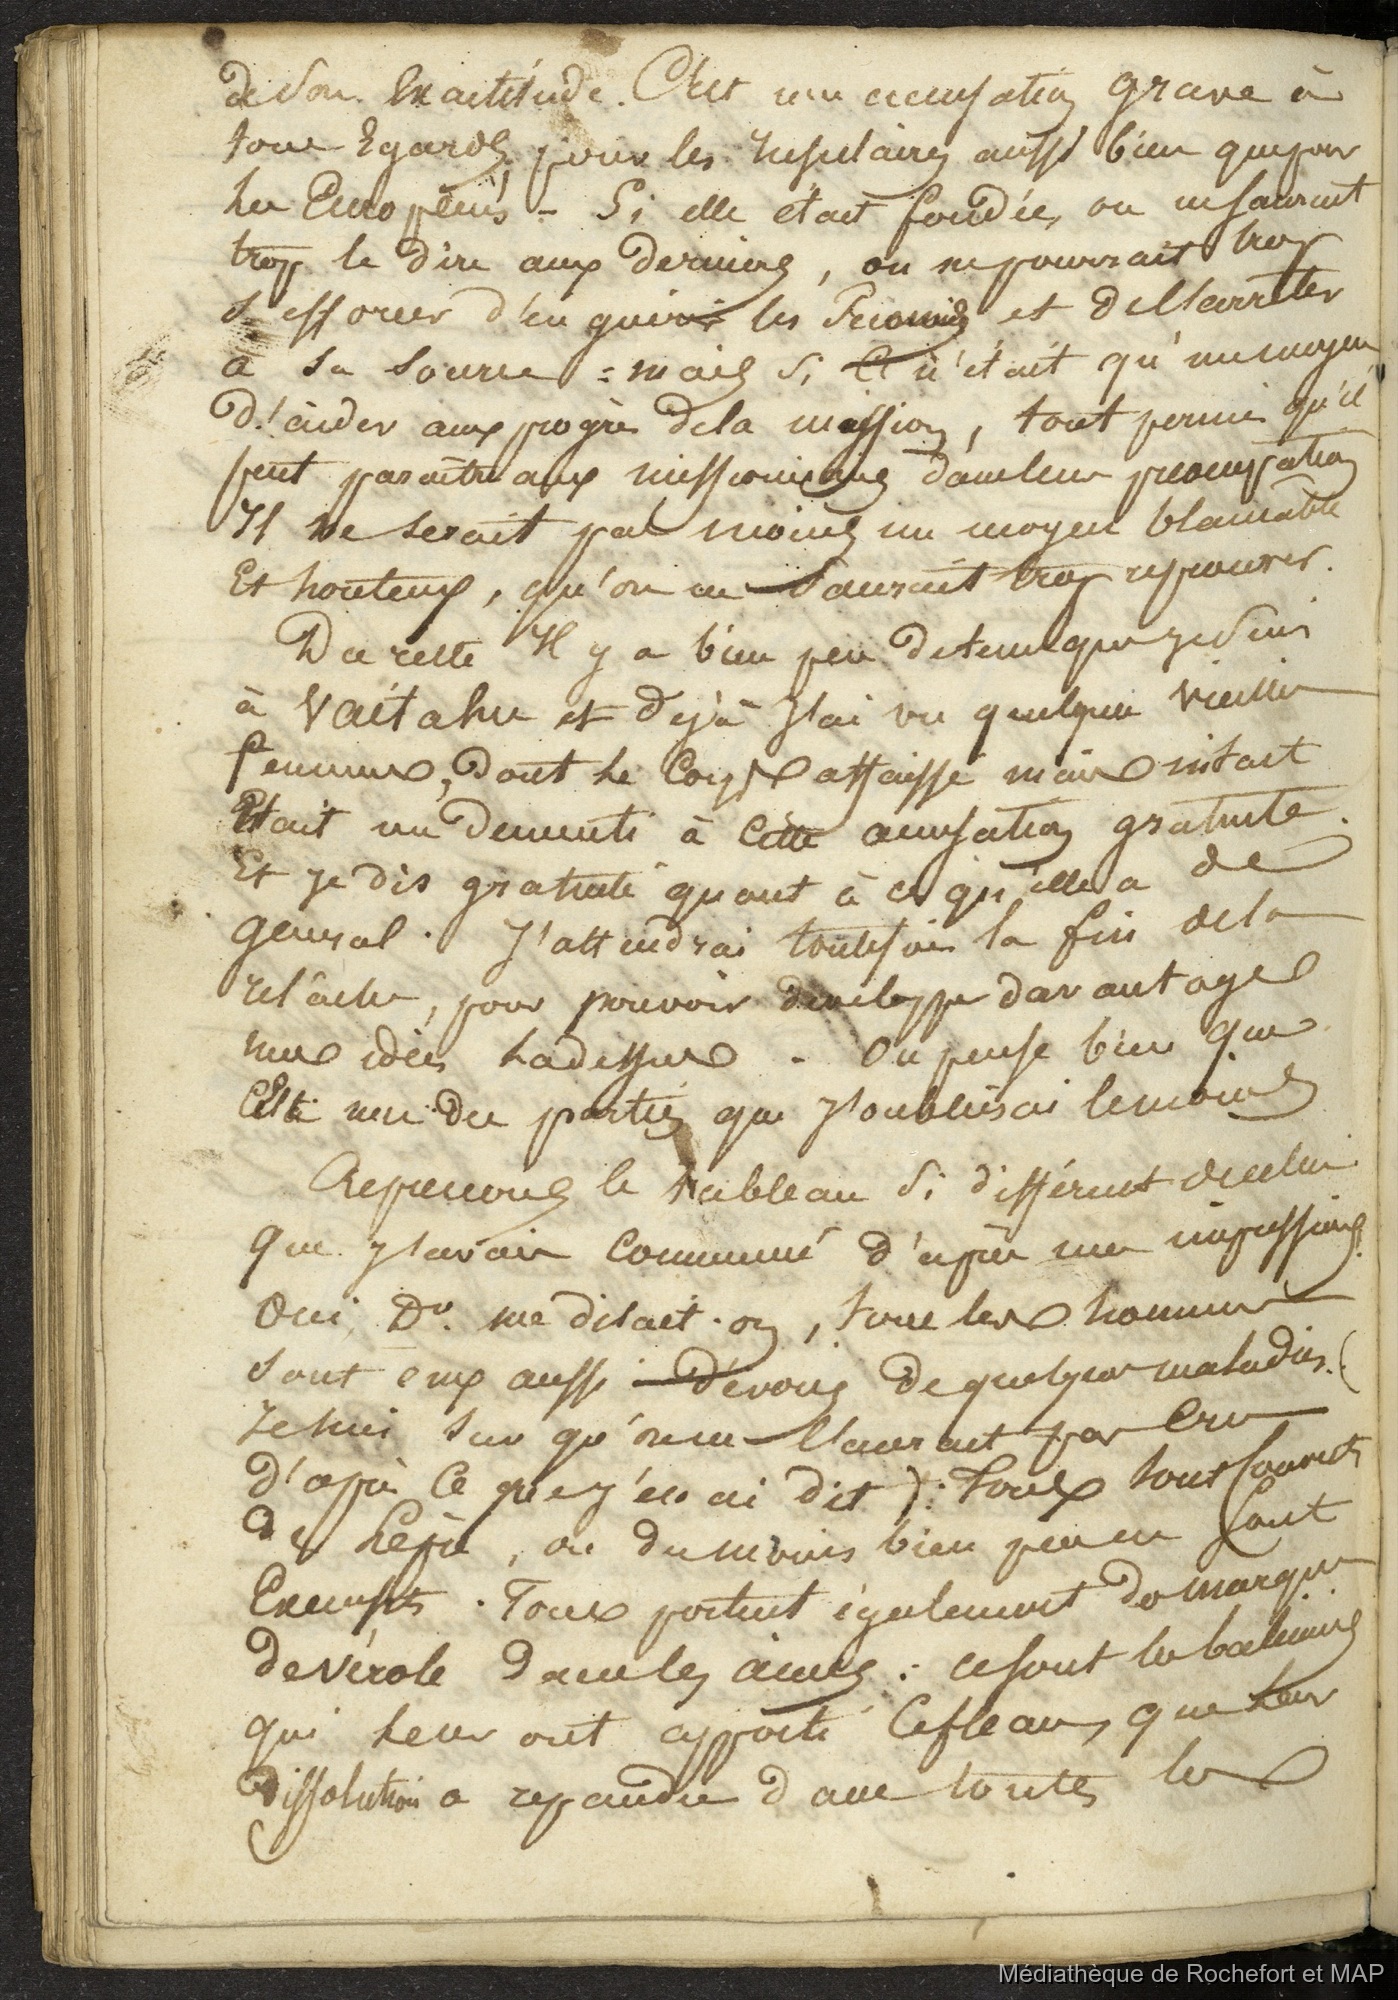 de son Exactitude. C'est une accusation grave à
tous Egards, pour les insulaires aussi bien que pour
les Européens - Si elle était fondée, on ne saurait
trop le dire aux derniers, on ne pourrait trop
s'efforcer d'en guérir les premiers et de l'arrêter
a sa source = mais si Ce n'était qu'un moyen
d'aider aux progrès de la mission, tout permis qu'il
peut paraître aux missionnaires dans leur préoccupation
Il ne serait pas moins un moyen blamable
Et honteux, qu'on ne saurait trop repousser.
Du reste Il y a bien peu de tems que je suis
à Vaïtahu et déjà J'ai vu quelques vieilles
femmes, dont le Corps affaissé mais intact
Etait un dementi à Cette accusation gratuite.
Et je dis gratuite quant à ce qu'elle a de
general. J'attendrai toutefois la fin de la
relâche, pour pouvoir développer davantage
mes idées la dessus - On pense bien que
C'est une des parties que J'oublierai le moins
Reprenons le tableau si différent de celui
que J'avais commencé d'après mes impressions.
Oui, Dr. me disait-on, tous les hommes
sont eux aussi dévorés de quelques maladies. (
Je suis sur qu'on ne l'aurait pas Cru
d'après Ce que j'en ai dit): Tous sont couverts
de Lèpre, ou du moins bien peu en sont
Exempts. Tous portent également des marques
de Vérole dans les aines: ce sont les baleiniers
qui leur ont apporté Ce fleau, que leur
dissolution a repandu dans toutes les
Médiathèque de Rochefort et MAP